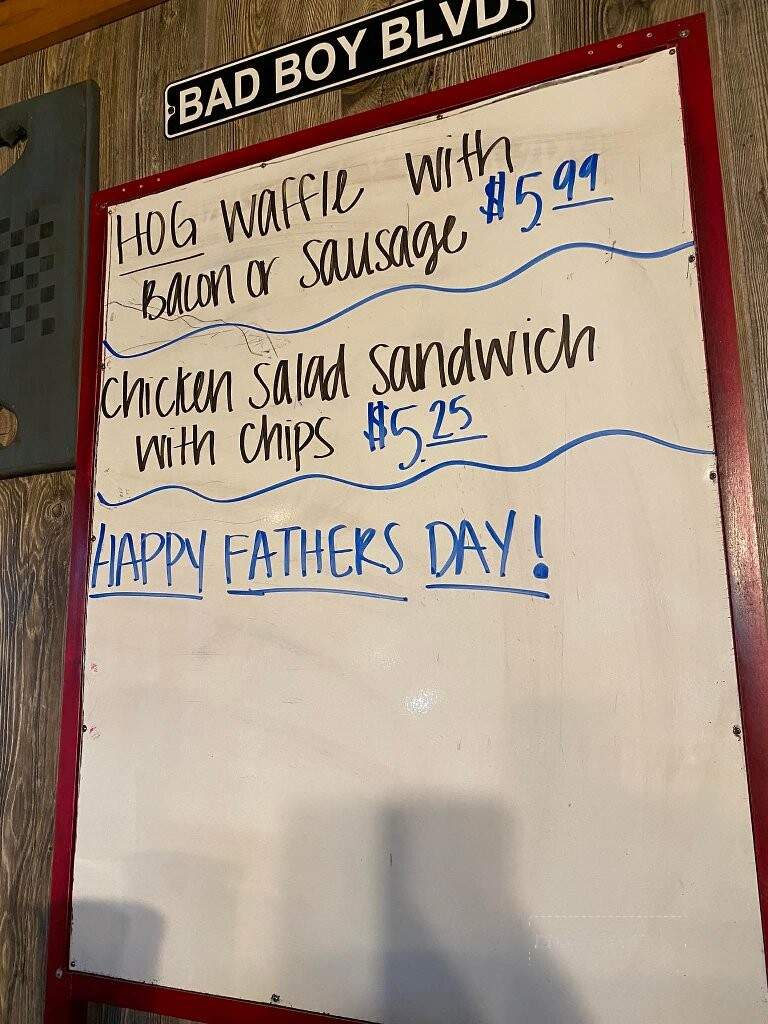 BAD BOY BLVD
HOG waffle with
Bacon or Sausage $5.99
chicken salad sandwich
with chips $5.25
HAPPY FATHERS DAY!